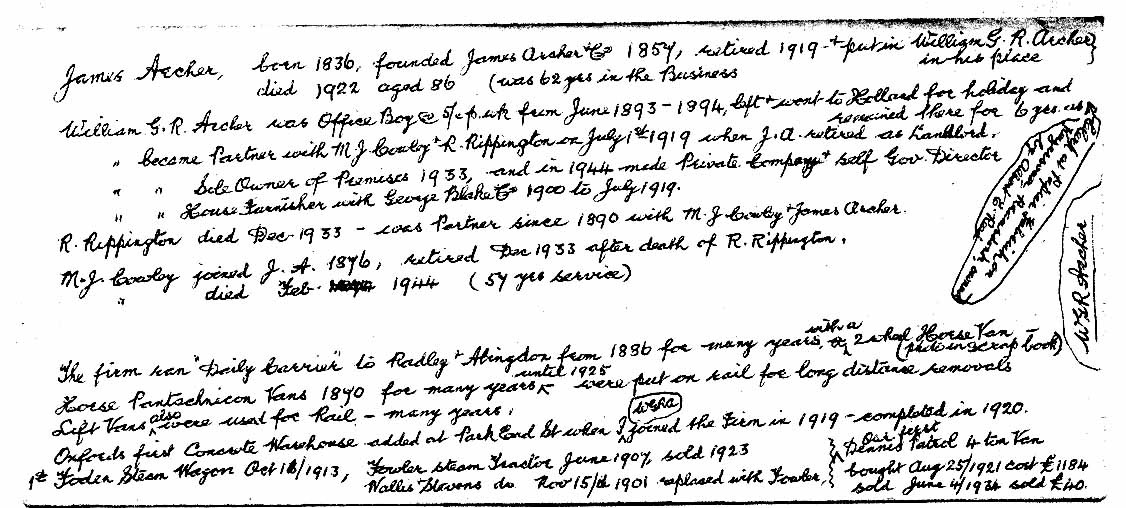 James Archer, born 1836, founded James Archer & Co 1857, retired 1919 + put in William G. R. Archer}
died 1922 aged 86 (was 62 yrs in the Business in his place
William G. R. Archer was Office Boy @ 5/- p.wk from June 1893 - 1894, left + went to Holland for holiday and
remained there for 6 yrs.
" became Partner with M J Cowley + R. Rippington on July 1st 1919 when J.A. retired as Landlord.
" " Sole Owner of Premises 1933, and in 1944 made Private Company + self Gov. Director
" " House Furnisher with George Blake & Co 1900 to July 1919.
R. Rippington died Dec. 1933 - was Partner since 1890 with M. J Cowley + James Archer.
M. J Cowley joined J. A. 1876, retired Dec 1933 after death of R. Rippington.
" died Feb. 1944 (57 yrs service)
WGR Archer
The firm ran "Daily Carrier" to Radley + Abingdon from 1886 for many years, with a 2 wheel Horse Van
(photo in scrap book)
Horse Pantechnicon Vans 1870 for many years until 1925 were put on rail for long distance removals
Lift Vans also were used for Rail - many years.
Oxfords first Concrete Warehouse added at Park End St when I WGRA joined the Firm in 1919 - completed in 1920.
1st Foden Steam Wagon Oct 16/1913, Fowler Steam Tractor June 1907, sold 1923
Wallis Stevens do Nov 15/th 1901 replaced with Fowler,
{Our first Dennis Patrol 4 ton Van
bought Aug 25/1921 cost £1184
sold June 4/1934 sold £40.